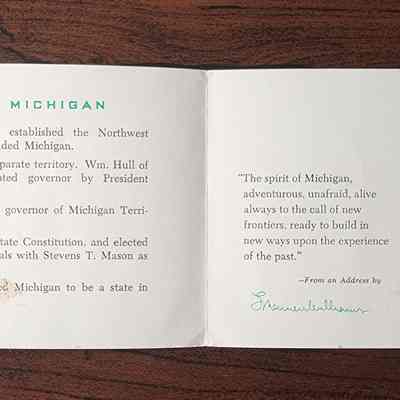 MICHIGAN
established the Northwest
ded Michigan.
parate territory. Wm. Hull of
ted governor by President
governor of Michigan Terri-
tate Constitution, and elected
als with Stevens T. Mason as
ed Michigan to be a state in
"The spirit of Michigan,
adventurous, unafraid, alive
always to the call of new
frontiers, ready to build in
new ways upon the experience
of the past."
—From an Address by